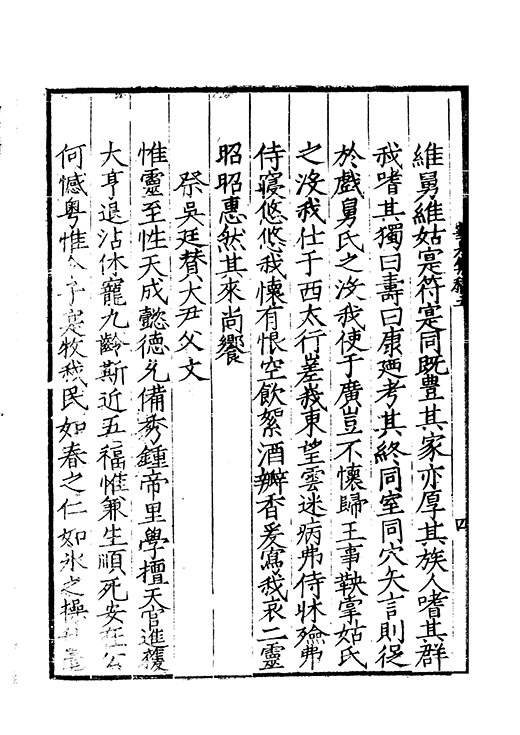 維舅維姑寔符寔同既豊其家亦厚其族人嗜其群
我嗜其獨曰壽曰康廼考其終同室同穴矢言則從
於戲舅氏之沒我使于廣豈不懷歸王事鞅掌姑氏
之沒我仕于西太行嵳我東望雲迷病弗侍牀殮弗
侍寢悠悠我懷有恨空飲絮酒瓣香爰寫我哀二靈
昭昭惠然其來尚饗
祭吳廷賛大尹父文
惟靈至性天成懿德允備秀鍾帝里學擅天官進獲
大亨退沾休寵九齡斯近五福惟兼生順死安在公
何憾粵惟令子寔牧我民如春之仁如氷之操
四